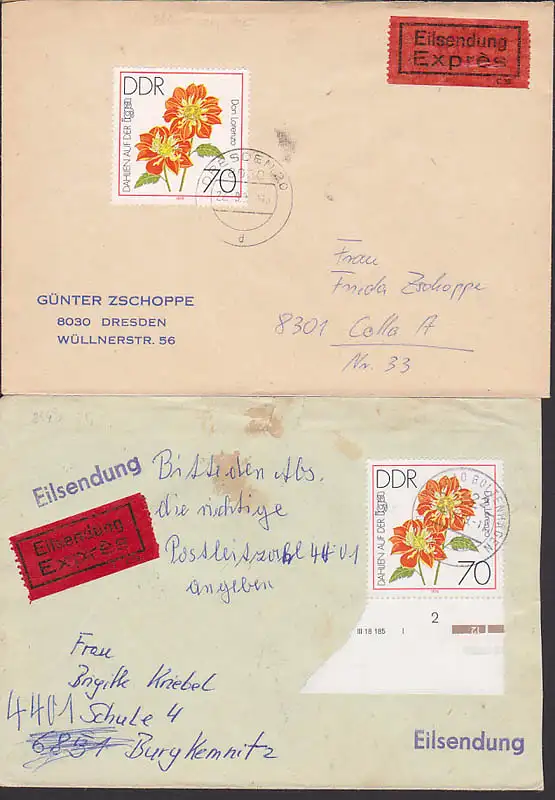 Eilsendung
Exprès
DDR
DAHLIEN AUF DER iga
Don Lorenzo
70
1979
DRESDEN 20
8020
d
GÜNTER ZSCHOPPE
8030 DRESDEN
WÜLLNERSTR. 56
Frau
Frieda Zschoppe
8301 Cotta A
Nr. 33
Eilsendung
Bitte den Abs.
die richtige
Postleitzahl 4401
angeben
Eilsendung
Exprès
DDR
DAHLIEN AUF DER iga
Don Lorenzo
70
1979
BOLTENHAGEN
2
III 18 185 I
12
Frau
Brigitte Kriebel
4401 Schule 4
6851 Burgkemnitz
Eilsendung